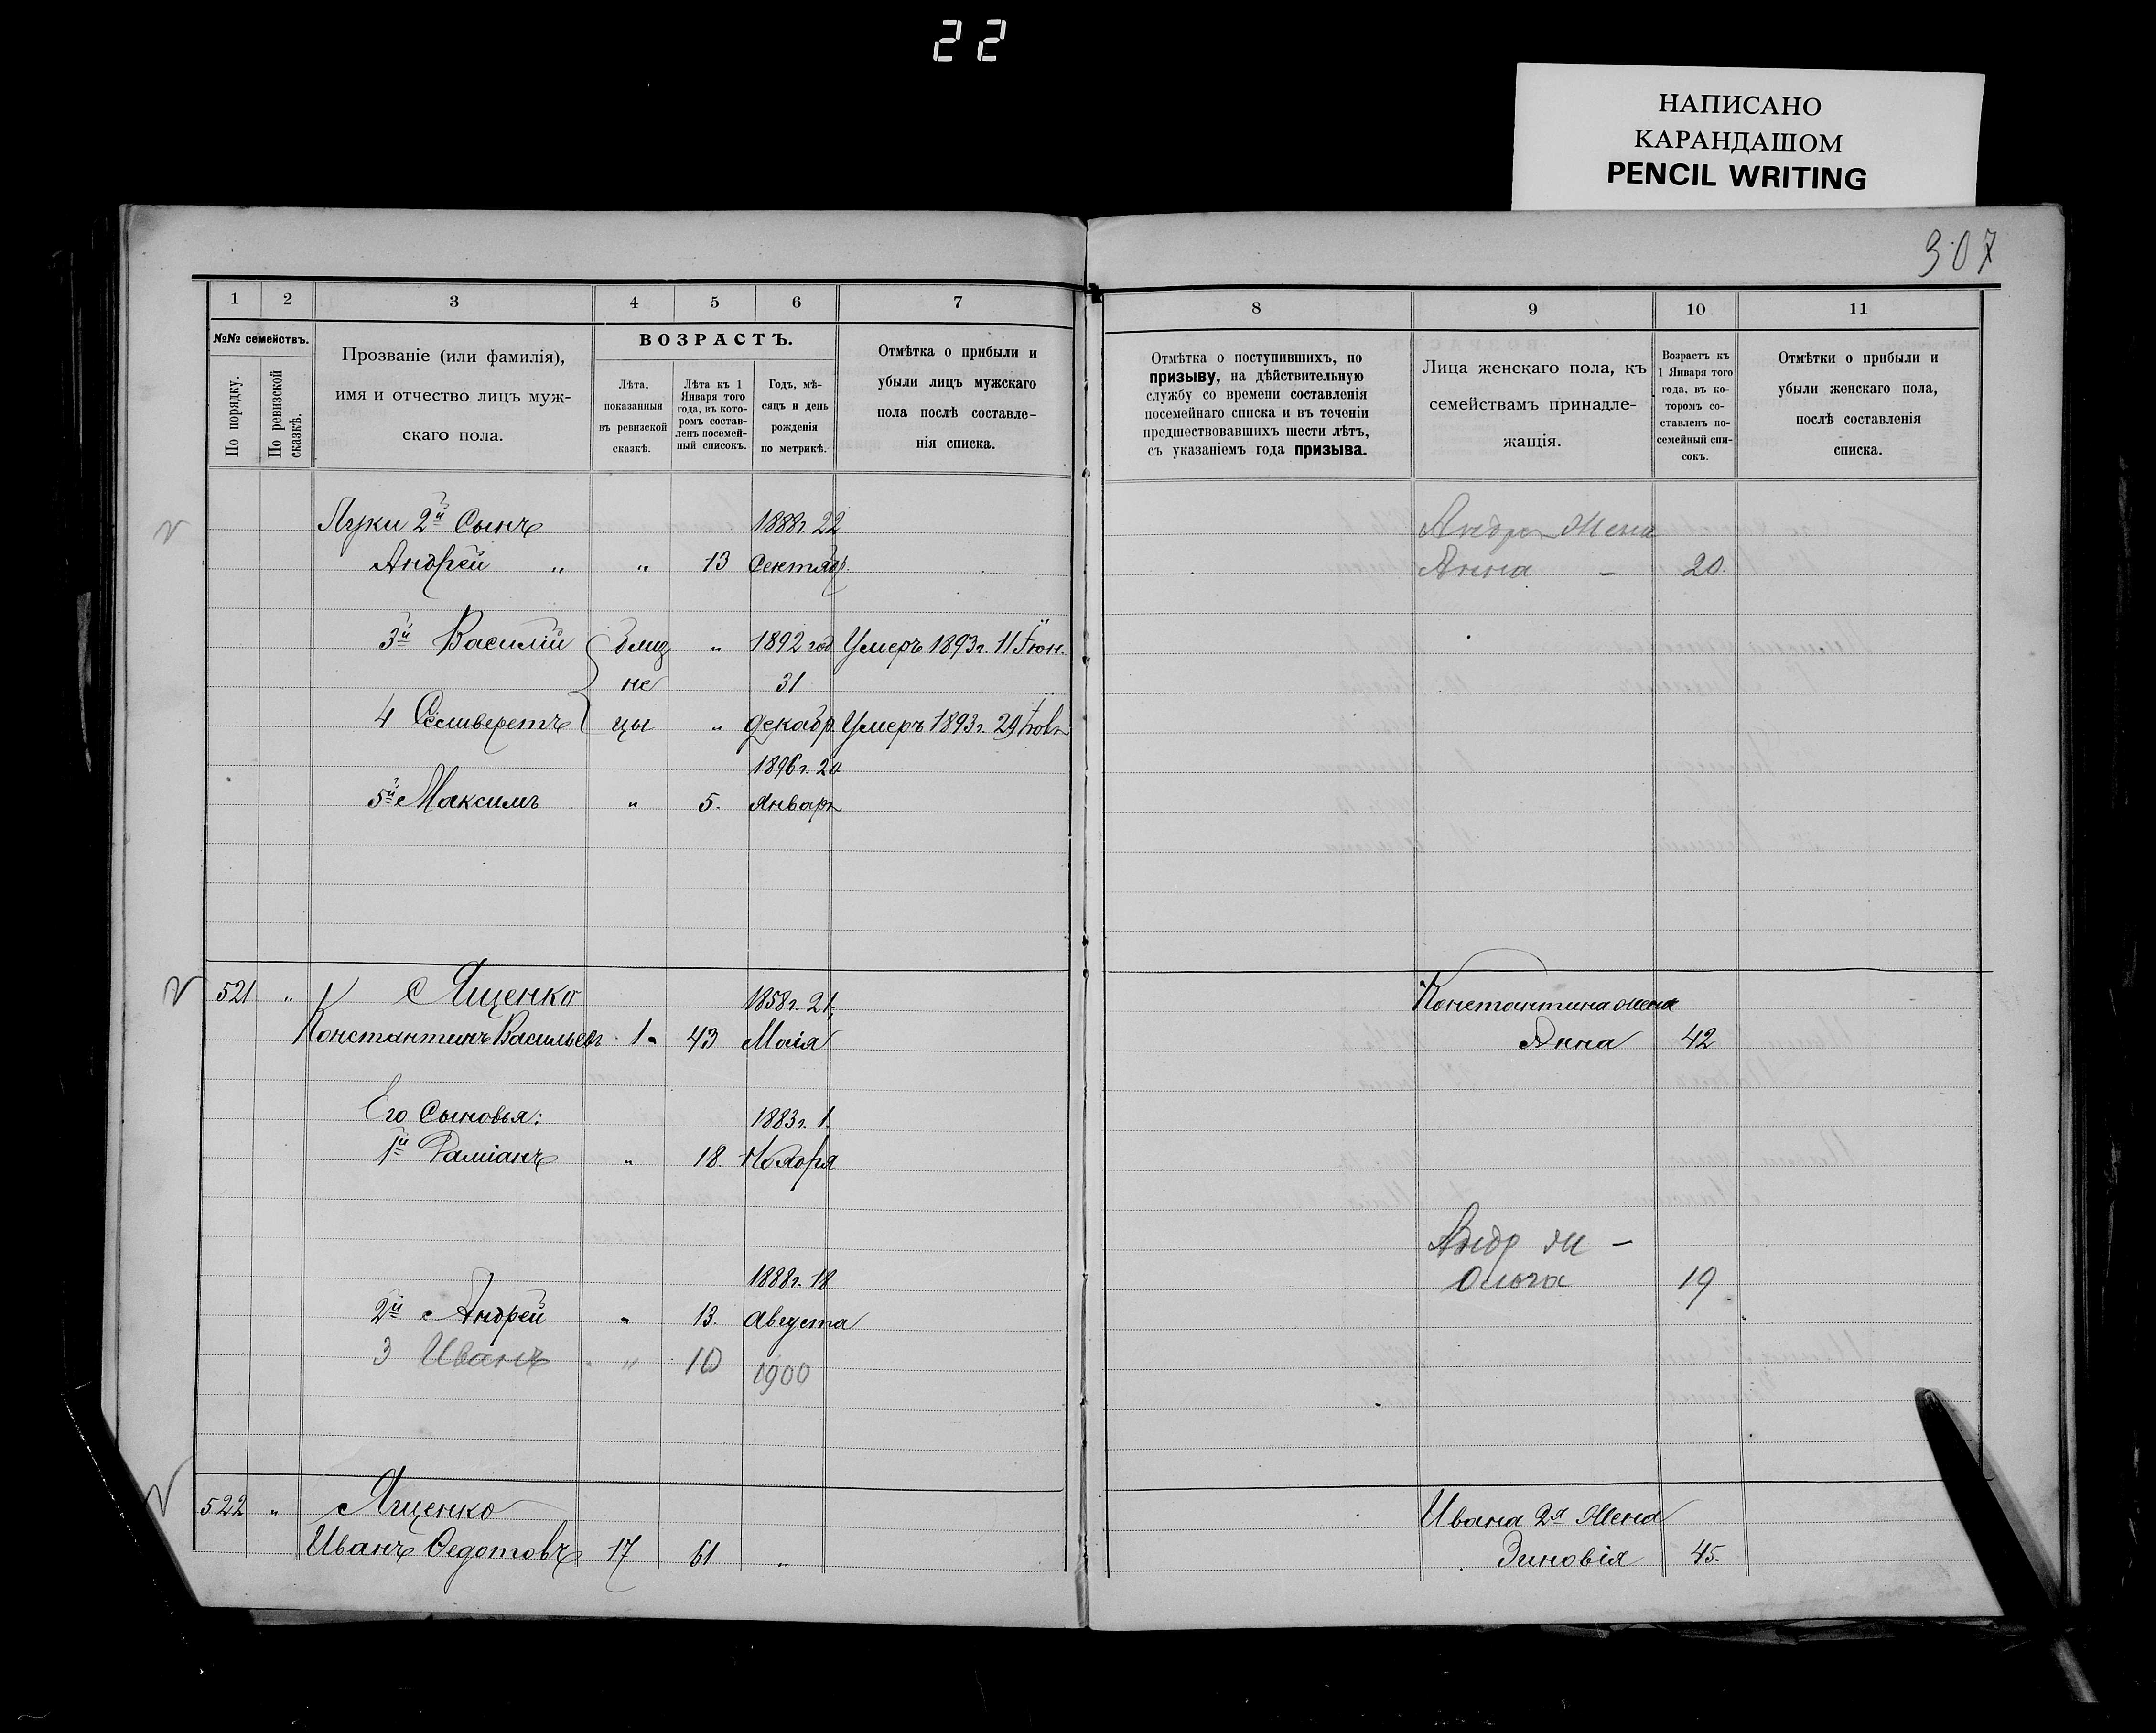 22
НАПИСАНО
КАРАНДАШОМ
PENCIL WRITING
307
1 2 3 4 5 6 7
№№ семействъ.
По порядку.
По ревизской сказкѣ.
Прозваніе (или фамилія),
имя и отчество лицъ муж-
скаго пола.
ВОЗРАСТЪ.
Лѣта,
показанныя
въ ревизской
сказкѣ.
Лѣта къ 1
Января того
года, въ кото-
ромъ состав-
ленъ посемей-
ный списокъ.
Годъ, мѣ-
сяцъ и день
рожденія
по метрикѣ.
Отмѣтка о прибыли и
убыли лицъ мужскаго
пола послѣ составле-
нія списка.
8 9 10 11
Отмѣтка о поступившихъ, по
призыву, на дѣйствительную
службу со времени составленія
посемейнаго списка и въ теченіи
предшествовавшихъ шести лѣтъ,
съ указаніемъ года призыва.
Лица женскаго пола, къ
семействамъ принадле-
жащія.
Возрастъ къ
1 Января того
года, въ ко-
торомъ со-
ставленъ по-
семейный спи-
сокъ.
Отмѣтки о прибыли и
убыли женскаго пола,
послѣ составленія
списка.
Луки 2й Сынъ 1888г. 22
Андрей " " 13 Сентябр
3й Василій близ " 1892 год Умеръ 1893г. 11 Іюн.
не 31
4 Селиверстъ цы " декабр Умеръ 1893г. 29
1896г. 20
5й Максимъ " 5. Январ
521 " Ященко 1858г. 21,
Константинъ Васильев 1. 43 Маія
Его Сыновья: 1883г. 1.
1й Даміанъ " 18. Ноября
1888г. 18
2й Андрей " 13. Августа
3 Иванъ " 10 1900
522 " Ященко
Иванъ Ѳедотовъ 17 61 "
Андре жена
Анна – 20.
Константина жена
Анна 42
Андр ж –
Ольга 19
Ивана 2я Жена
Зиновія 45.